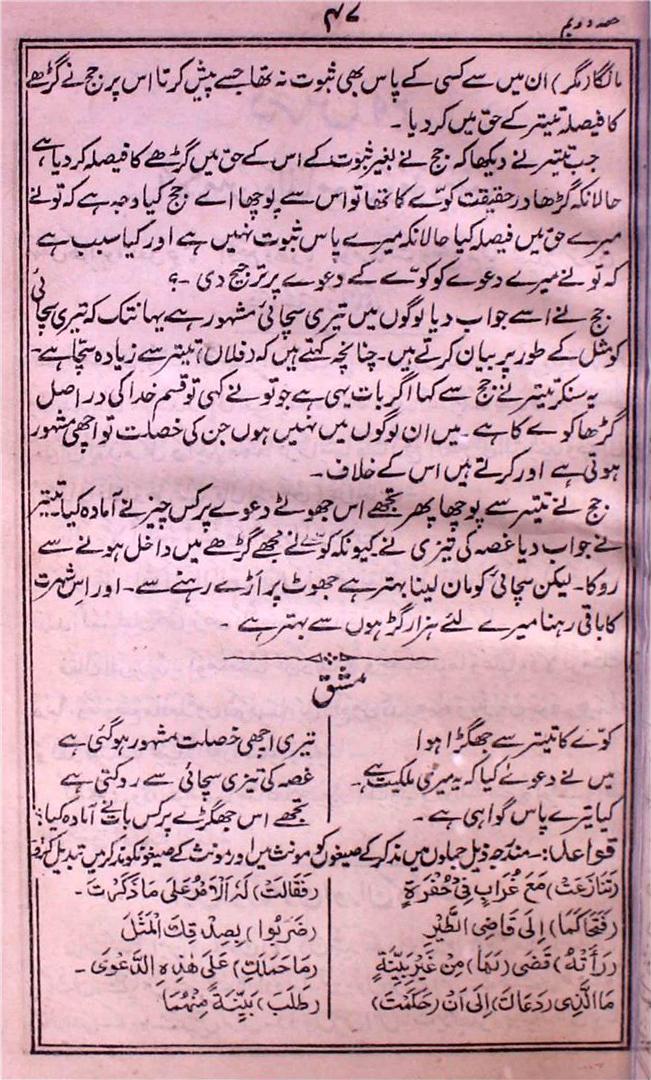 حصہ دویم
۴۷
مانگا (مگر) ان میں سے کسی کے پاس بھی ثبوت نہ تھا جسے پیش کرتا اس پر جج نے گڑھے
کا فیصلہ تیتر کے حق میں کر دیا۔
جب تیتر نے دیکھا کہ جج نے بغیر ثبوت کے اس کے حق میں گڑھے کا فیصلہ کر دیا ہے
حالانکہ گڑھا در حقیقت کوّے کا تھا تو اس سے پوچھا اے جج کیا وجہ ہے کہ تو نے
میرے حق میں فیصلہ کیا حالانکہ میرے پاس ثبوت نہیں ہے اور کیا سبب ہے
کہ تو نے میرے دعوے کو کوّے کے دعوے پر ترجیح دی ۔؟
جج نے اسے جواب دیا لوگوں میں تیری سچائی مشہور ہے یہانتک کہ تیری سچائی
کو مثل کے طور پر بیان کرتے ہیں۔ چنانچہ کہتے ہیں کہ (فلاں) تیتر سے زیادہ سچّا ہے۔
یہ سنکر تیتر نے جج سے کہا اگر بات یہی ہے جو تو نے کہی تو قسم خدا کی در اصل
گڑھا کوے کا ہے۔ میں ان لوگوں میں نہیں ہوں جن کی خصلت تو اچھی مشہور
ہوتی ہے اور کرتے ہیں اس کے خلاف۔
جج نے تیتر سے پوچھا پھر تجھے اس جھوٹے دعوے پر کس چیز نے آمادہ کیا تیتر
نے جواب دیا غصہ کی تیزی نے کیونکہ کوّے نے مجھے گڑھے میں داخل ہونے سے
روکا۔ لیکن سچائی کو مان لینا بہتر ہے جھوٹ پر اَڑے رہنے سے۔ اور اس شہرت
کا باقی رہنا میرے لئے ہزار گڑہوں سے بہتر ہے ۔
مشق
کوّے کا تیتر سے جھگڑا ہوا
میں نے دعوےٰ کیا کہ یہ میری ملکیت ہے۔
کیا تیرے پاس گواہی ہے ۔
تیری اچھی خصلت مشہور ہو گئی ہے
غصہ کی تیزی سچائی سے روکتی ہے
تجھے اس جھگڑے پر کس بات نے آمادہ کیا؟
قواعد:۔ مندرجہ ذیل جملوں میں مذکر کے صیغوں کو مونث میں اور مونث کے صیغوں کو مذکر میں تبدیل کرو
(تَنَازَعَتْ) مَعَ غُرَابٍ فِیْ حُفْرَةٍ
(فَتَحَاكَمَا) اِلٰى قَاضِى الطَّيْرِ
(رَأَتْهُ) قَضٰى (لَهَا) مِنْ غَيْرِ بَيِّنَةٍ
مَا الَّذِىْ (دَعَاكَ) اِلٰى اَنْ (حَكَمْتَ)
(فَقَالَتْ) لَهُ اَلْاَمْرُ عَلٰى مَا ذَكَرْتَ۔
(ضَرَبُوا) بِصِدْقِكَ الْمَثَلَ
(مَا حَمَلَكِ) عَلٰى هٰذِهِ الدَّعْوٰى ۔
(طَلَبَ) بَيِّنَةً مِنْهُمَا